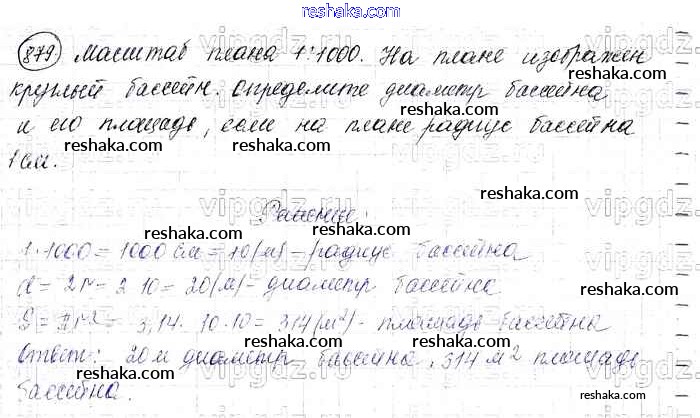 reshaka.com
879. Масштаб плана 1:1000. На плане изображен
круглый бассейн. Определите диаметр бассейна
и его площадь, если на плане радиус бассейна
1 см.
reshaka.com
Решение:
reshaka.com
1·1000 = 1000 см = 10(м) – радиус бассейна
d = 2r = 2·10 = 20(м) – диаметр бассейна
reshaka.com
S = πr² = 3,14·10·10 = 314(м²) - площадь бассейна
Ответ: 20 м диаметр бассейна, 314 м² площадь
бассейна.
reshaka.com
reshaka.com
vipgdz.com